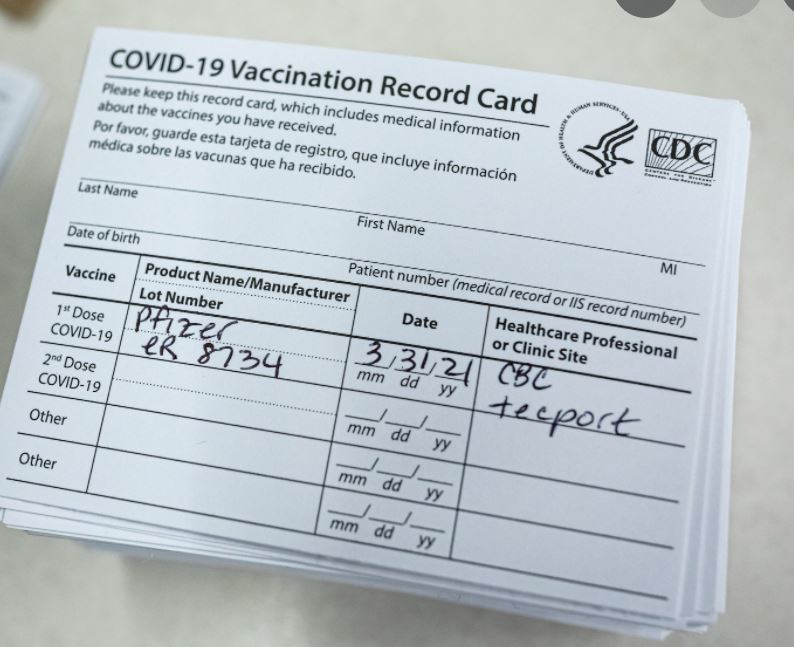 COVID-19 Vaccination Record Card
Please keep this record card, which includes medical information
about the vaccines you have received.
Por favor, guarde esta tarjeta de registro, que incluye información
médica sobre las vacunas que ha recibido.
DEPARTMENT OF HEALTH & HUMAN SERVICES · USA
CDC
CENTERS FOR DISEASE
CONTROL AND PREVENTION
Last Name
First Name
MI
Date of birth
Patient number (medical record or IIS record number)
Vaccine
Product Name/Manufacturer
Lot Number
Date
Healthcare Professional
or Clinic Site
1st Dose
COVID-19
Pfizer
ER 8734
3/31/21
mm dd yy
CBC
tecport
2nd Dose
COVID-19
mm dd yy
Other
mm dd yy
Other
mm dd yy